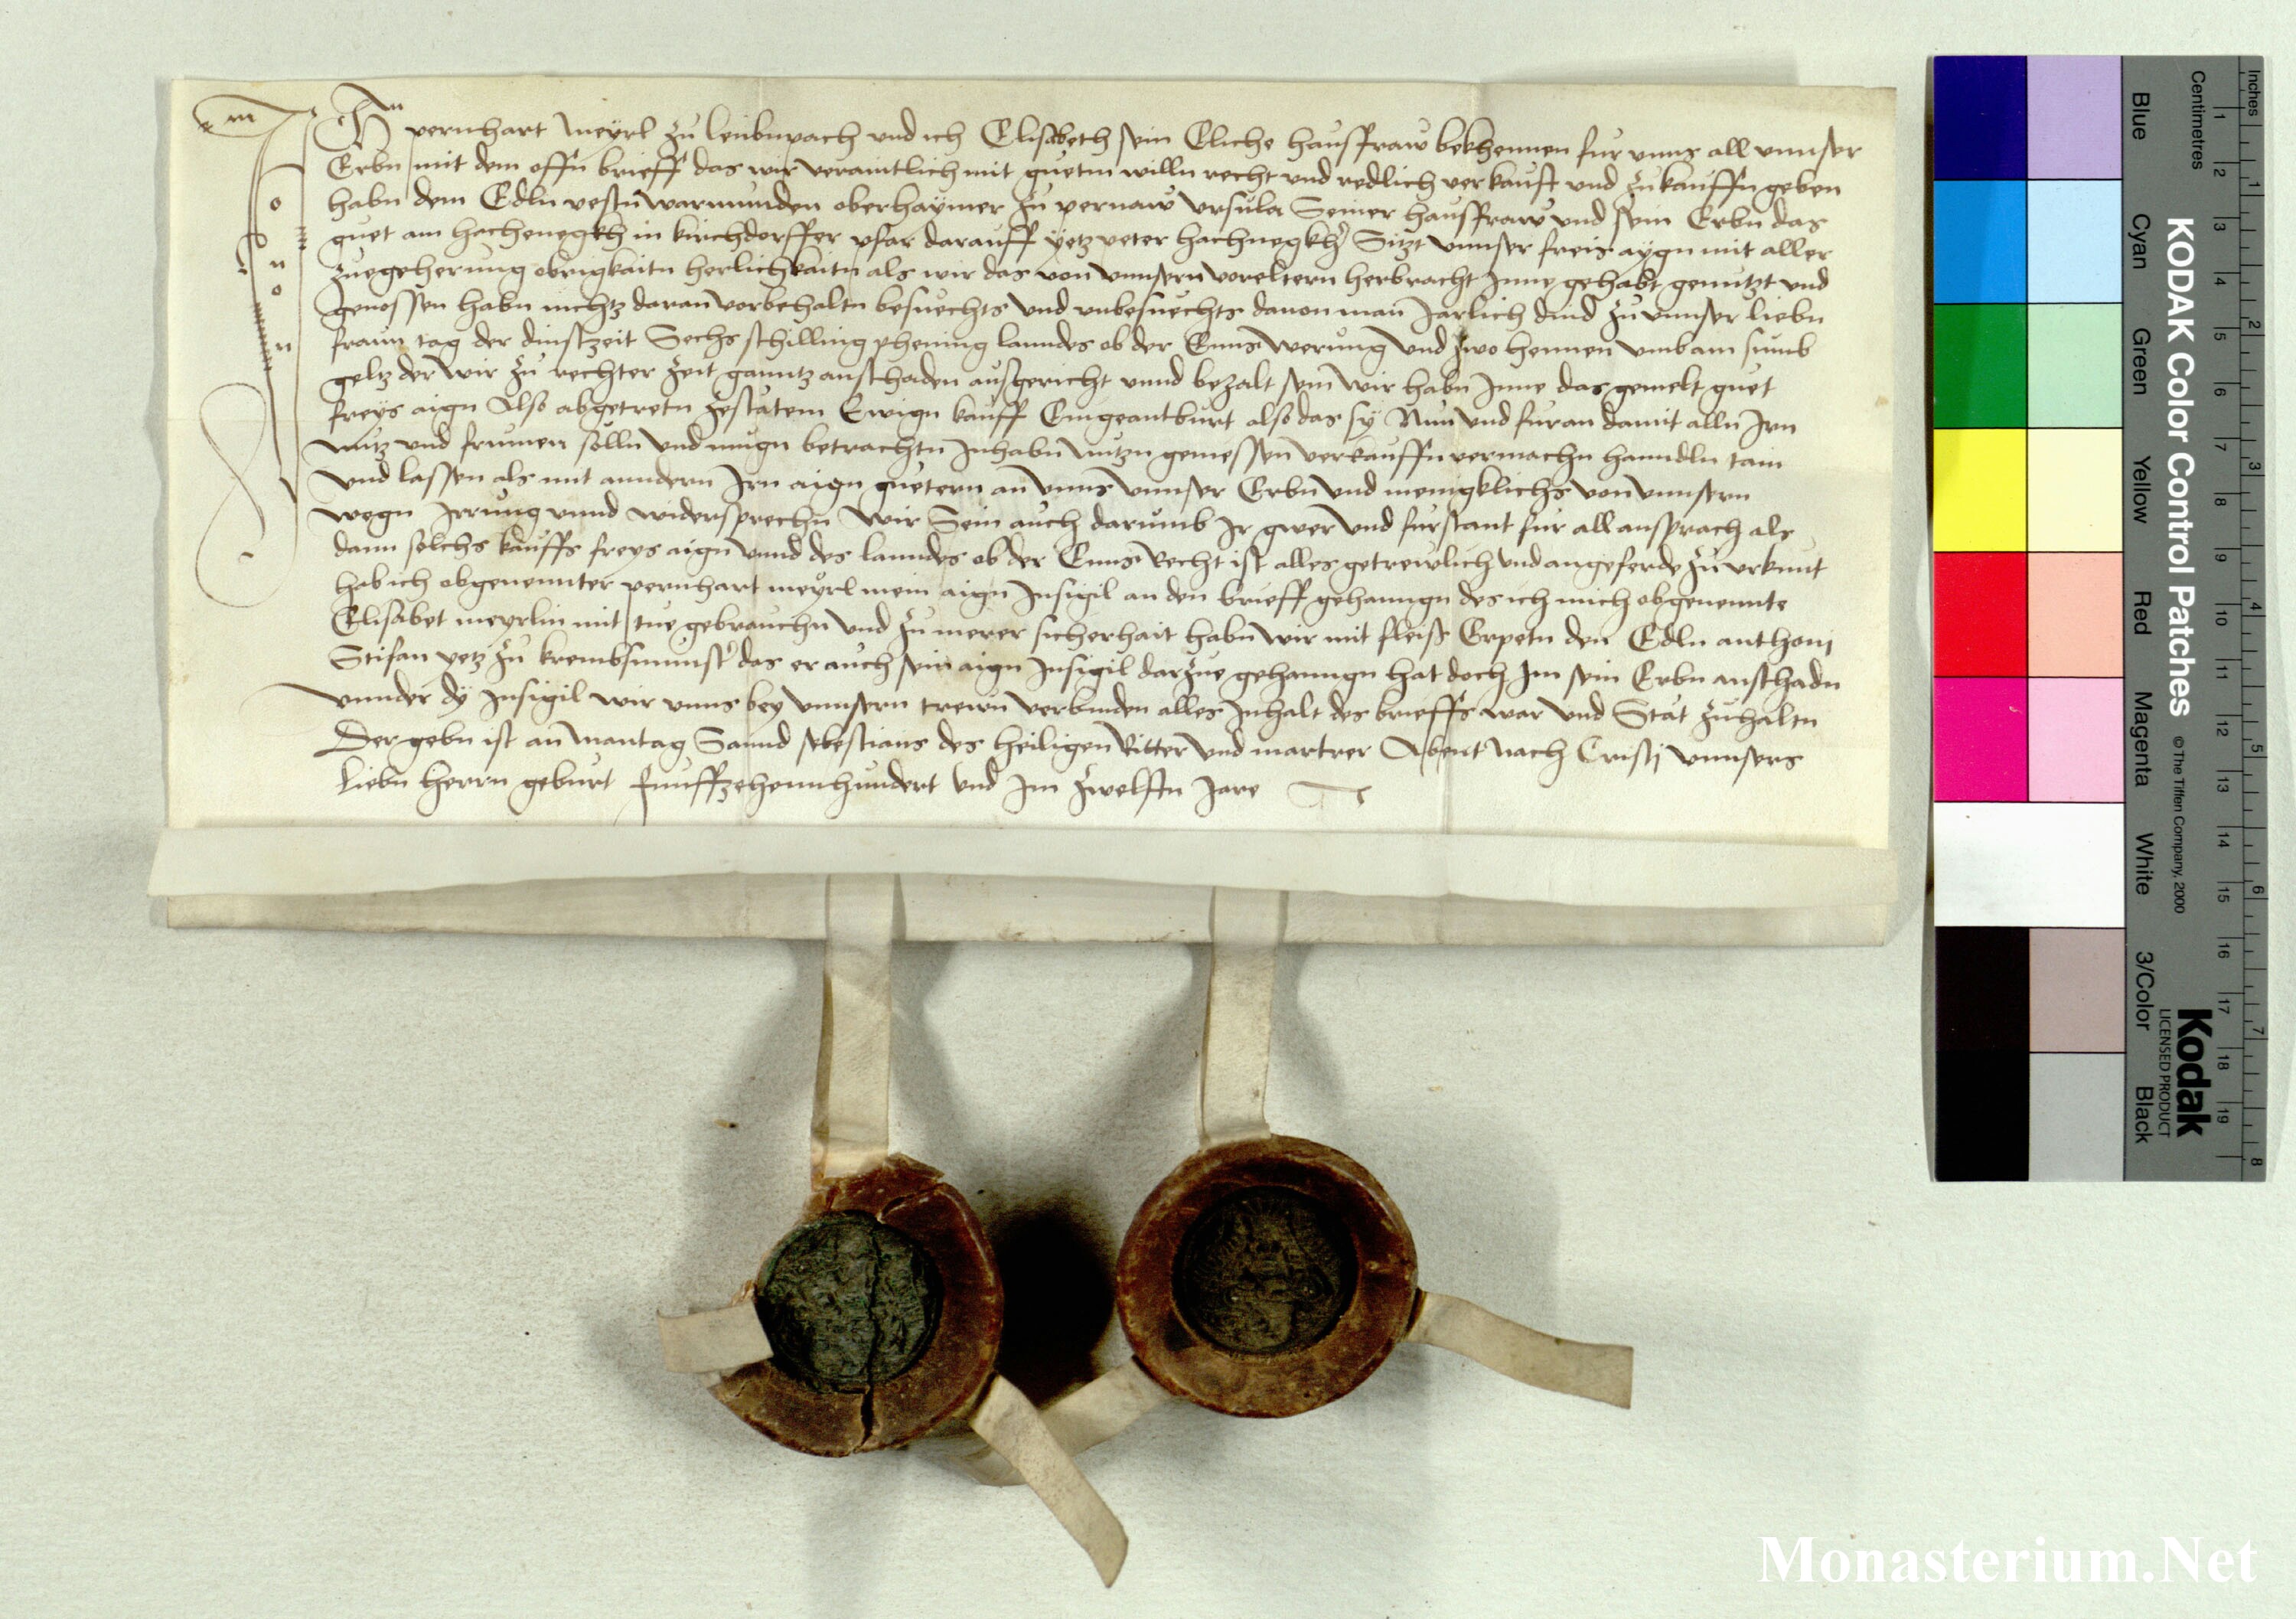 Ich pernhart Meyrl zu leubmpach und ich Elisabeth sein Eliche hausffraw bekhennen fur unns all unnser
Erbn mit dem offn brieff das wir veraintlich mit guetm willn recht und redlich verkaufft und zukauffn geben
habn dem Edln vestn warmunden oberhaymer zu pernaw ursula Seiner hausffraw und sein Erbn das
guet am hachenegkh in kirchdorffer pfar darauff yetz peter hachnegkher Sitzt unnser freis aygn mit aller
zuegeherung obrigkaitn herlichkaitn als wir das von unnsern voreltern herbracht Inne gehabt genutzt und
genossen habn nichtz daran vorbehaltn besuechts und unbesuechts davon man Jarlich dind zu unnser liebn
fraun tag der dinstzeit Sechs schilling phening lanndes ob der Enns werung und zwo hennen umb ain sumb
geltz der wir zu rechter zeit ganntz an schaden ausgericht unnd bezalt sein wir habn Inne das gemelt guet
freys aign Also abgetretn zestatem Ewign kauff Eingeantburt also das sy Nun und furan damit alln Irn
nutz und frumen solln und mugn betrachtn Inhabn nutzn geniessen verkauffn vermachn hanndln tain
und lassen als mit anndern Irn aign guetern an unns unnser Erbn und menigklichs von unnsern
wegn Irrung unnd widersprechn Wir Sein auch darumb Ir gwer und furstant fur all ansprach als
dann solchs kauffs freys aign unnd des lanndes ob der Enns Recht ist alles getrewlich und angeferde zu urkunt
hab ich obgenennter pernhart meyrl mein aign Insigil an den brieff gehanngn des ich mich obgenennte
Elisabet meyrlin mit tue gebrauchn und zu merer sicherhait habn wir mit fleiss Erpetn den Edln anthonj
Stifan yetz zu krembsmunster das er auch sein aign Insigil darzue gehanngn hat doch Im sein Erbn an schadn
unnder dy Insigil wir unns bey unnsern trewn verbinden alles Inhalt des brieffs war und Stat zuhaltn
Der gebn ist an Mantag Sannd sebestians des heiligen Ritter und martrer Abent Nach Cristj unnsers
liebn herrn geburt funffzehennhundert und Im zwelftn Jare
KODAK Color Control Patches
© The Tiffen Company, 2000
Kodak
LICENSED PRODUCT
Blue Cyan Green Yellow Red Magenta White 3/Color Black
Centimetres 1 2 3 4 5 6 7 8 9 10 11 12 13 14 15 16 17 18 19
Inches 1 2 3 4 5 6 7 8
Monasterium.Net